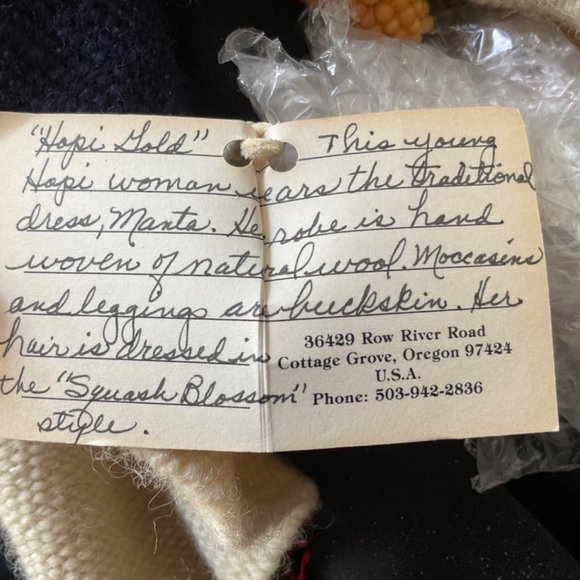 "Hopi Gold" This young
Hopi woman wears the traditional
dress, Manta. He robe is hand
woven of natural wool. Moccasins
and leggings are buckskin. Her
hair is dressed in
the "Squash Blossom"
style.
36429 Row River Road
Cottage Grove, Oregon 97424
U.S.A.
Phone: 503-942-2836